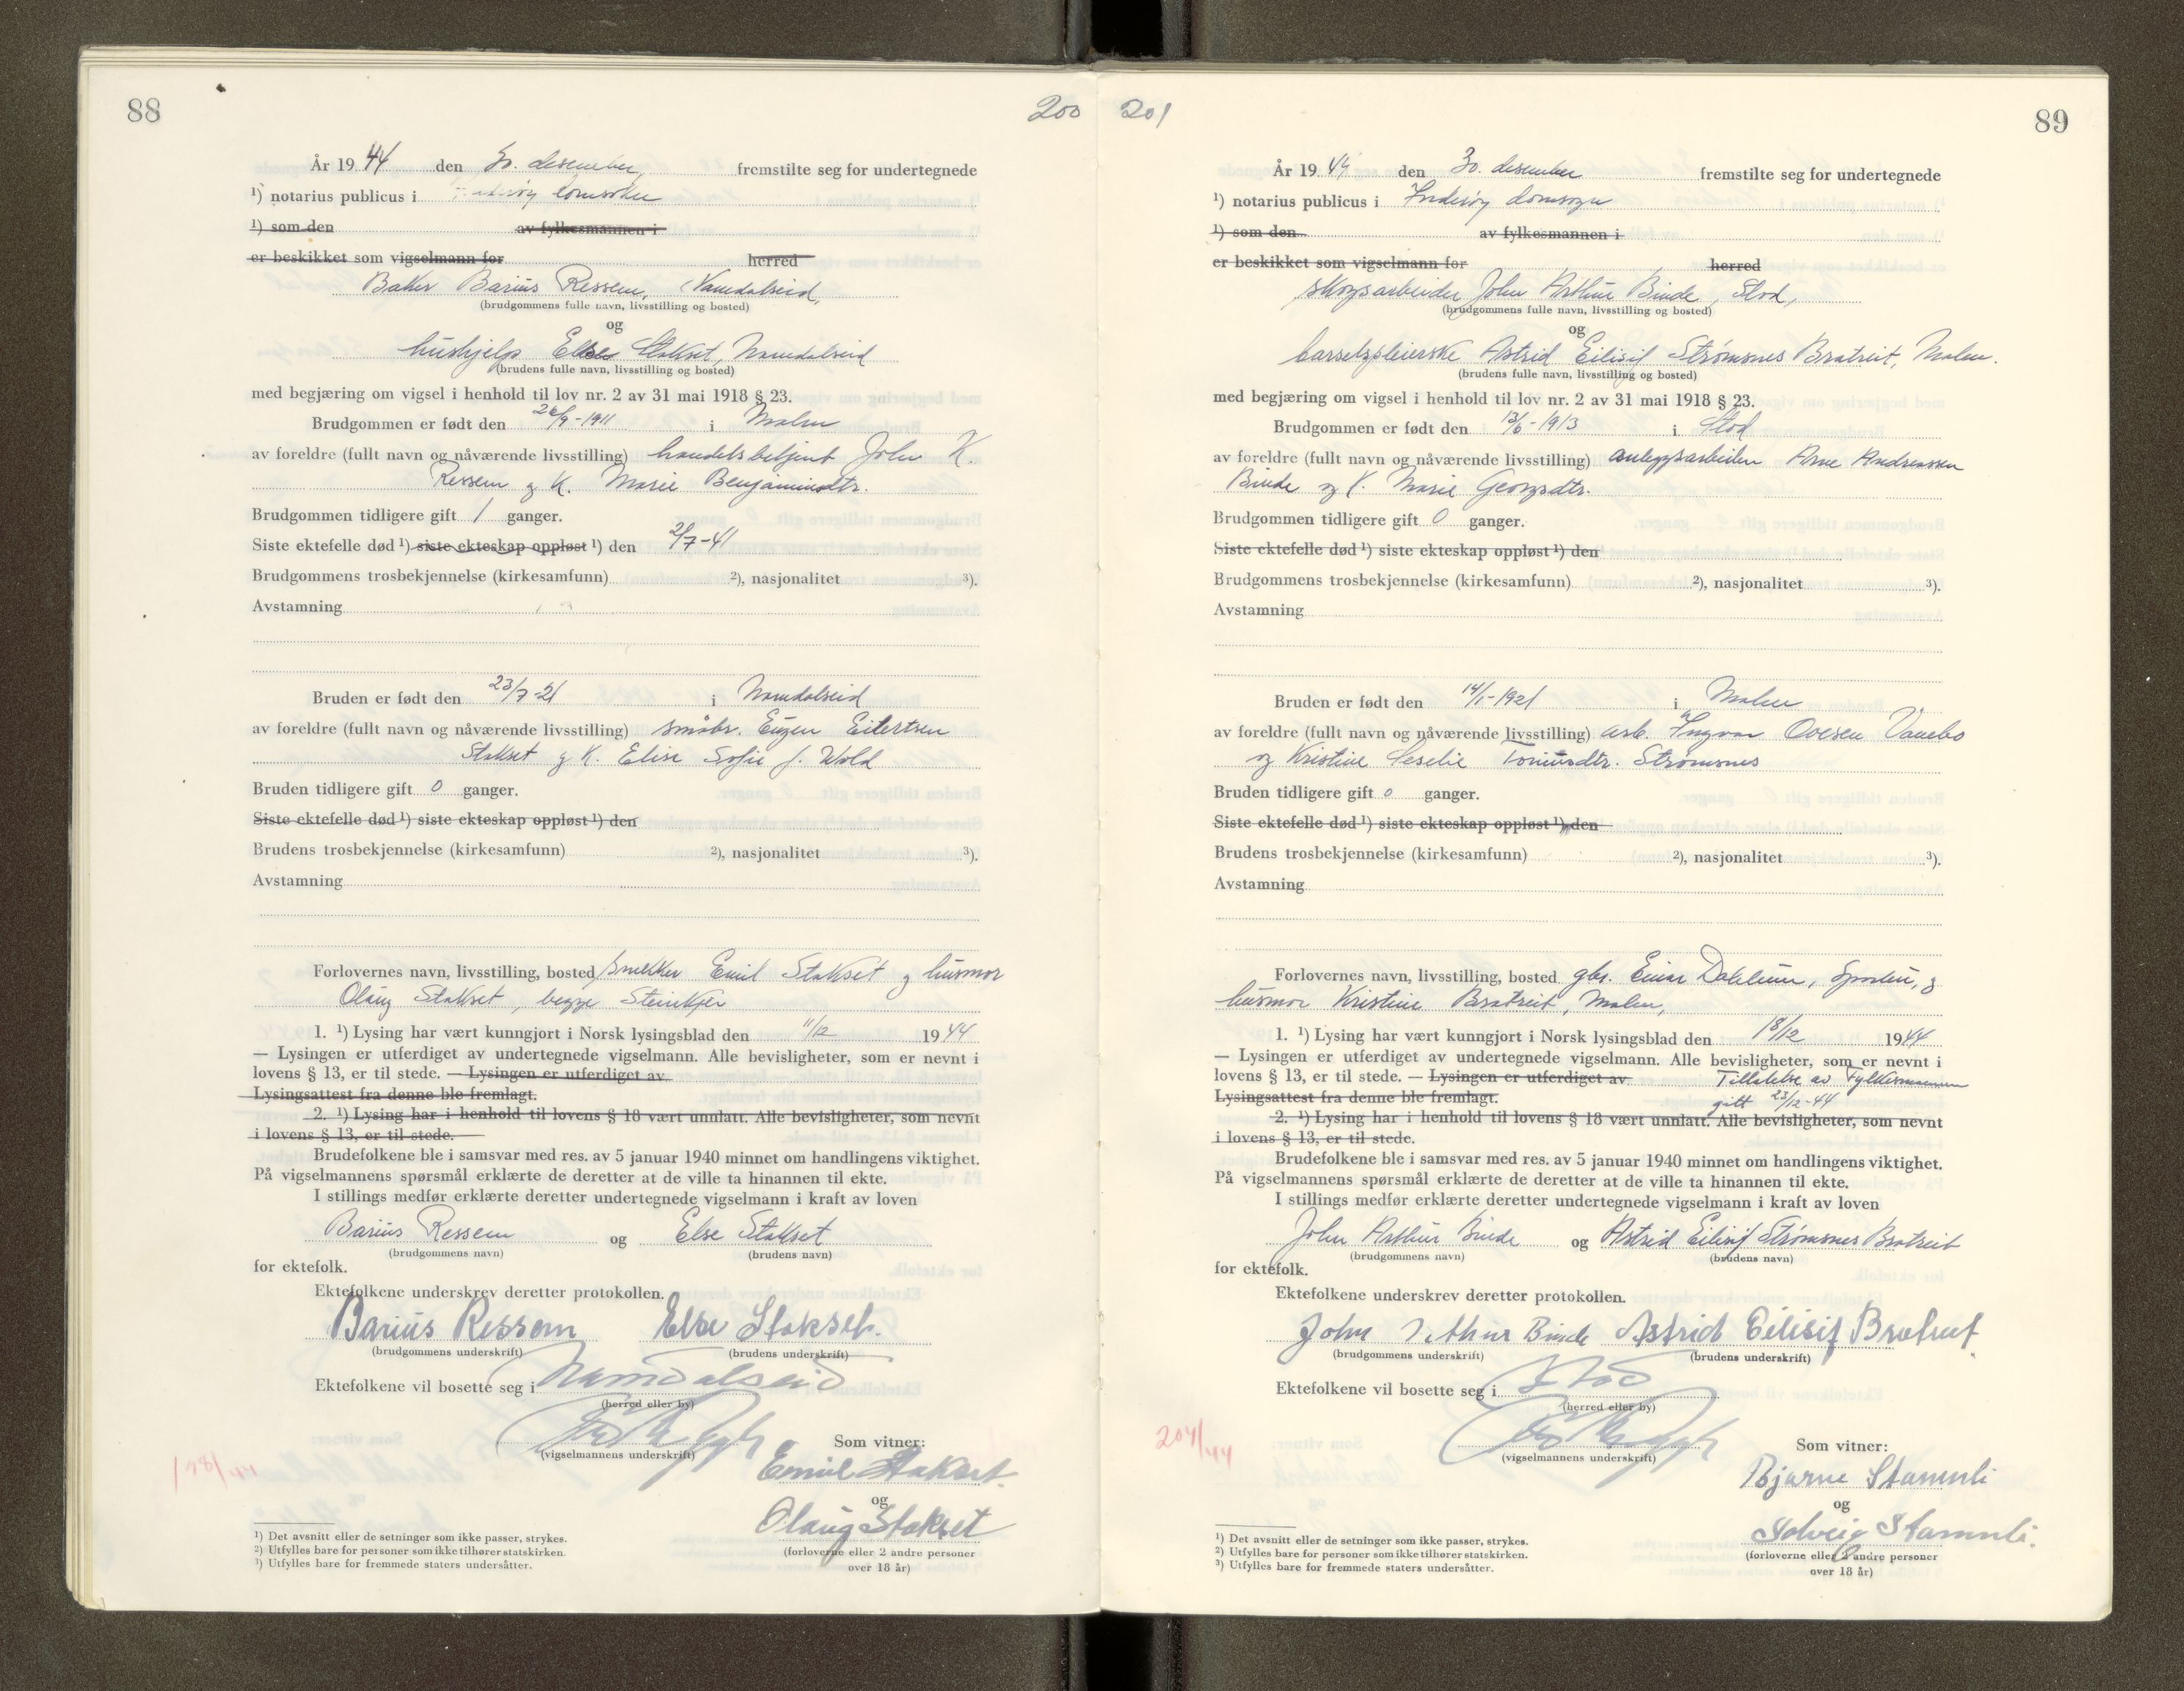 88
200
År 1944 den 30. desember, fremstilte seg for undertegnede
¹) notarius publicus i Inderøy domsokn
¹) som den av fylkesmannen i
er beskikket som vigselmann for herred
Baker Barius Ressem, Namdalseid,
(brudgommens fulle navn, livsstilling og bosted)
og
hushjelp Else Stakset, Namdalseid
(brudens fulle navn, livsstilling og bosted)
med begjæring om vigsel i henhold til lov nr. 2 av 31 mai 1918 § 23.
Brudgommen er født den 26/9-1911 i Malm
av foreldre (fullt navn og nåværende livsstilling) handelsbetjent John K.
Ressem og K. Marie Benjaminsdtr.
Brudgommen tidligere gift 1 ganger.
Siste ektefelle død ¹) siste ekteskap oppløst ¹) den 2/7-41
Brudgommens trosbekjennelse (kirkesamfunn) ²), nasjonalitet ³).
Avstamning
Bruden er født den 23/7-21 i Namdalseid
av foreldre (fullt navn og nåværende livsstilling) småbr. Eugen Eilertsen
Stakset og K. Elise Sofie J. Wold
Bruden tidligere gift 0 ganger.
Siste ektefelle død ¹) siste ekteskap oppløst ¹) den
Brudens trosbekjennelse (kirkesamfunn) ²), nasjonalitet ³).
Avstamning
Forlovernes navn, livsstilling, bosted snekker Emil Stakset og husmor
Olaug Stakset, begge Steinkjer
1. ¹) Lysing har vært kunngjort i Norsk lysingsblad den 11/12 1944
— Lysingen er utferdiget av undertegnede vigselmann. Alle bevisligheter, som er nevnt i
lovens § 13, er til stede. — Lysingen er utferdiget av
Lysingsattest fra denne ble fremlagt.
2. ¹) Lysing har i henhold til lovens § 18 vært unnlatt. Alle bevisligheter, som nevnt
i lovens § 13, er til stede.
Brudefolkene ble i samsvar med res. av 5 januar 1940 minnet om handlingens viktighet.
På vigselmannens spørsmål erklærte de deretter at de ville ta hinannen til ekte.
I stillings medfør erklærte deretter undertegnede vigselmann i kraft av loven
Barius Ressem og Else Stakset
(brudgommens navn) (brudens navn)
for ektefolk.
Ektefolkene underskrev deretter protokollen.
Barius Ressem Else Stakset.
(brudgommens underskrift) (brudens underskrift)
Ektefolkene vil bosette seg i Namdalseid
(herred eller by)
(vigselmannens underskrift)
Som vitner:
198/44
Emil Stakset.
og
Olaug Stakset
(forloverne eller 2 andre personer
over 18 år)
¹) Det avsnitt eller de setninger som ikke passer, strykes.
²) Utfylles bare for personer som ikke tilhører statskirken.
³) Utfylles bare for fremmede staters undersåtter.
201
89
År 1944 den 30. desember fremstilte seg for undertegnede
¹) notarius publicus i Inderøy domsogn
¹) som den av fylkesmannen i
er beskikket som vigselmann for herred
skogsarbeider John Arthur Binde, Stod,
(brudgommens fulle navn, livsstilling og bosted)
og
barselpleierske Astrid Eilisif Strømsnes Bratreit, Malm.
(brudens fulle navn, livsstilling og bosted)
med begjæring om vigsel i henhold til lov nr. 2 av 31 mai 1918 § 23.
Brudgommen er født den 13/6-1913 i Stod
av foreldre (fullt navn og nåværende livsstilling) anleggsarbeider Arne Andreassen
Binde og K. Marie Georgsdtr.
Brudgommen tidligere gift 0 ganger.
Siste ektefelle død ¹) siste ekteskap oppløst ¹) den
Brudgommens trosbekjennelse (kirkesamfunn) ²), nasjonalitet ³).
Avstamning
Bruden er født den 14/1-1921 i Malm
av foreldre (fullt navn og nåværende livsstilling) arb. Ingvar Ovesen Vanebo
og Kristine Leselie Toniusdtr. Strømsnes
Bruden tidligere gift 0 ganger.
Siste ektefelle død ¹) siste ekteskap oppløst ¹) den
Brudens trosbekjennelse (kirkesamfunn) ²), nasjonalitet ³).
Avstamning
Forlovernes navn, livsstilling, bosted gbr. Einar Dahlum, Sparbu, og
husmor Kristine Bratreit, Malm,
1. ¹) Lysing har vært kunngjort i Norsk lysingsblad den 18/12 1944
— Lysingen er utferdiget av undertegnede vigselmann. Alle bevisligheter, som er nevnt i
lovens § 13, er til stede. — Lysingen er utferdiget av Tillatelse av Fylkesmannen
Lysingsattest fra denne ble fremlagt. gitt 23/12-44
2. ¹) Lysing har i henhold til lovens § 18 vært unnlatt. Alle bevisligheter, som nevnt
i lovens § 13, er til stede.
Brudefolkene ble i samsvar med res. av 5 januar 1940 minnet om handlingens viktighet.
På vigselmannens spørsmål erklærte de deretter at de ville ta hinannen til ekte.
I stillings medfør erklærte deretter undertegnede vigselmann i kraft av loven
John Arthur Binde og Astrid Eilisif Strømsnes Bratreit
(brudgommens navn) (brudens navn)
for ektefolk.
Ektefolkene underskrev deretter protokollen.
John Arthur Binde Astrid Eilisif Bratreit
(brudgommens underskrift) (brudens underskrift)
Ektefolkene vil bosette seg i Stod
(herred eller by)
204/44
(vigselmannens underskrift)
Som vitner:
Bjarne Stamnli
og
Solveig Stamnli.
(forloverne eller 2 andre personer
over 18 år)
¹) Det avsnitt eller de setninger som ikke passer, strykes.
²) Utfylles bare for personer som ikke tilhører statskirken.
³) Utfylles bare for fremmede staters undersåtter.